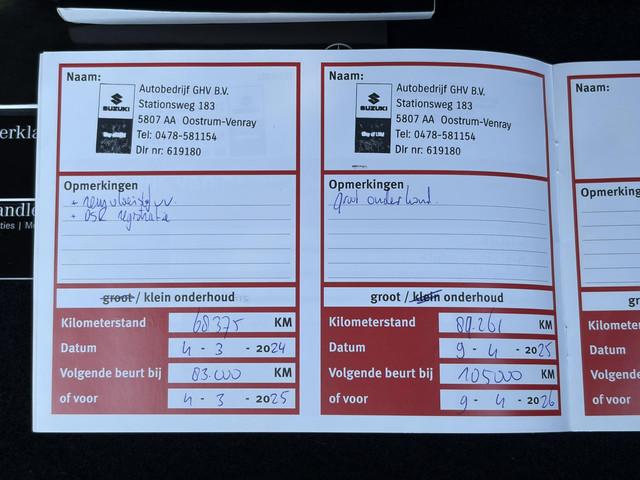 Naam:
SUZUKI
Autobedrijf GHV B.V.
Stationsweg 183
5807 AA Oostrum-Venray
Tel: 0478-581154
Dlr nr: 619180
Opmerkingen
+ remvloeistof vv.
+ DSR registratie
groot / klein onderhoud
Kilometerstand 68375 KM
Datum 4 - 3 - 2024
Volgende beurt bij 83.000 KM
of voor 4 - 3 - 2025
Naam:
SUZUKI
Autobedrijf GHV B.V.
Stationsweg 183
5807 AA Oostrum-Venray
Tel: 0478-581154
Dlr nr: 619180
Opmerkingen
groot onderhoud.
groot / klein onderhoud
Kilometerstand KM
Datum 9 - 4 - 2025
Volgende beurt bij 105000 KM
of voor 9 - 4 - 2026
Naam:
Opmerking
gr
Kilometer
Datum
Volgende
of voor
erkla
andle
ties | M